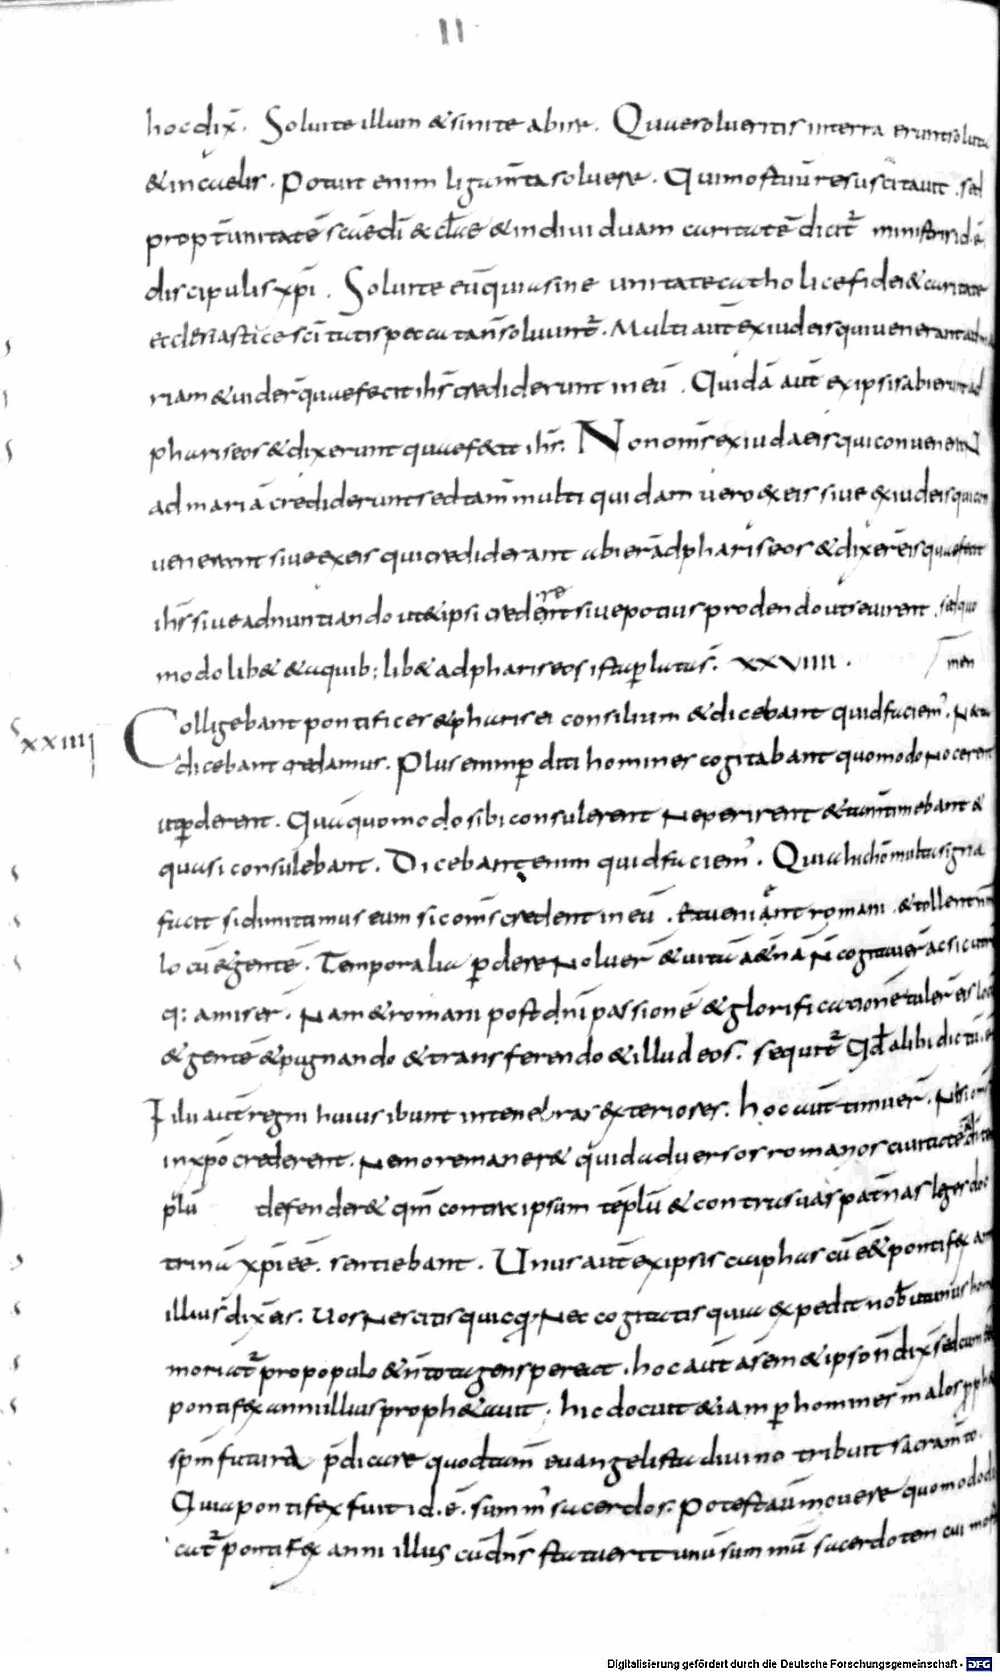 11
hoc dix̄. Soluite illum & sinite abire. Quae solueritis in terra erunt solu
& in caelis. Potuit enim ligamenta soluere. Qui mortuū resuscitauit. sed
discipulis xp̄i. Soluite eū quia sine unitate catholice fidei & caritate
ecclesiastice sc̄itatis peccata n̄ soluunt̄. Multi aut̄ ex iudeis qui uenerant ad
riam & uider̄ quae fecit ih̄s crediderunt in eū. Quidā aut̄ ex ipsis abierunt ad
phariseos & dixerunt quae fecit ih̄s. Non om̄s ex iudaeis qui conuenerūt
ad mariā crediderunt sed tam̄ multi quidam uero ex eis siue ex iudeis qui con
uenerant siue ex eis qui crediderant abierā ad phariseos & dixer̄ eis quae fecit
ih̄s siue adnuntiando ut & ipsi crederent siue potius prodendo ut seuirent. sed quo
modo lib& & a quib; lib& ad phariseos ista plata s̄. xxviiii.
men
xxiiii Colligebant pontifices & pharisei consilium & dicebant quid faciem'. Nec
dicebant credamus. Plus enim pditi homines cogitabant quomodo nocerent
ut pderent. Quā quomodo sibi consulerent ne perirent & tam̄ timebant &
quasi consulebant. Dicebant enim quid faciem'. Quia hic homo multa signa
facit si dimittimus eum sic om̄s credent in eū. Et uenient romani. & tollent
locū & gentē. Temporalia pdere noluer̄ & uitā aet̄nā n̄ cogitauer̄ ac sic utrū
q: amiser̄. Nam & romani post dn̄i passionē & glorificationē tuler̄ eis locū
& gentē & pugnando & transferendo & illud eos. sequit̄ qd̄ alibi dictū ē
Filii aut̄ regni huius ibunt in tenebras exteriores. hoc aut̄ timuer̄. Ne si om̄s
in xp̄o crederent. Nemo remaner& qui d aduersos romanos ciuitatē di & tē
plū defender& qm̄ contra ipsum tēplū & contra suas pat̄nas leges doc
trinā xp̄i ēē. sentiebant. Unus aut̄ ex ipsis caiphas cū ee& pontifex anni
illius dix̄ eis. Uos nescitis quicq̄ nec cogitatis quia expedit nob̄ ut unus homo
moriat̄ pro populo & n̄ tota gens pereat. hoc aut̄ a sem&ipso n̄ dix̄ sed cum
pontifex anni illius proph&auit. hic docuit & iam p homines malos pph&
sp̄m futura p̄dicare quod tam̄ euangelista diuino tribuit sacram̄to.
Quia pontifex fuit id. ē. summ' sacerdos. Potest autē mouere quomodo di
cat̄ pontifex anni illius cū dn̄s statuerit unū summū sacerdotem cui mor
Digitalisierung gefördert durch die Deutsche Forschungsgemeinschaft - DFG